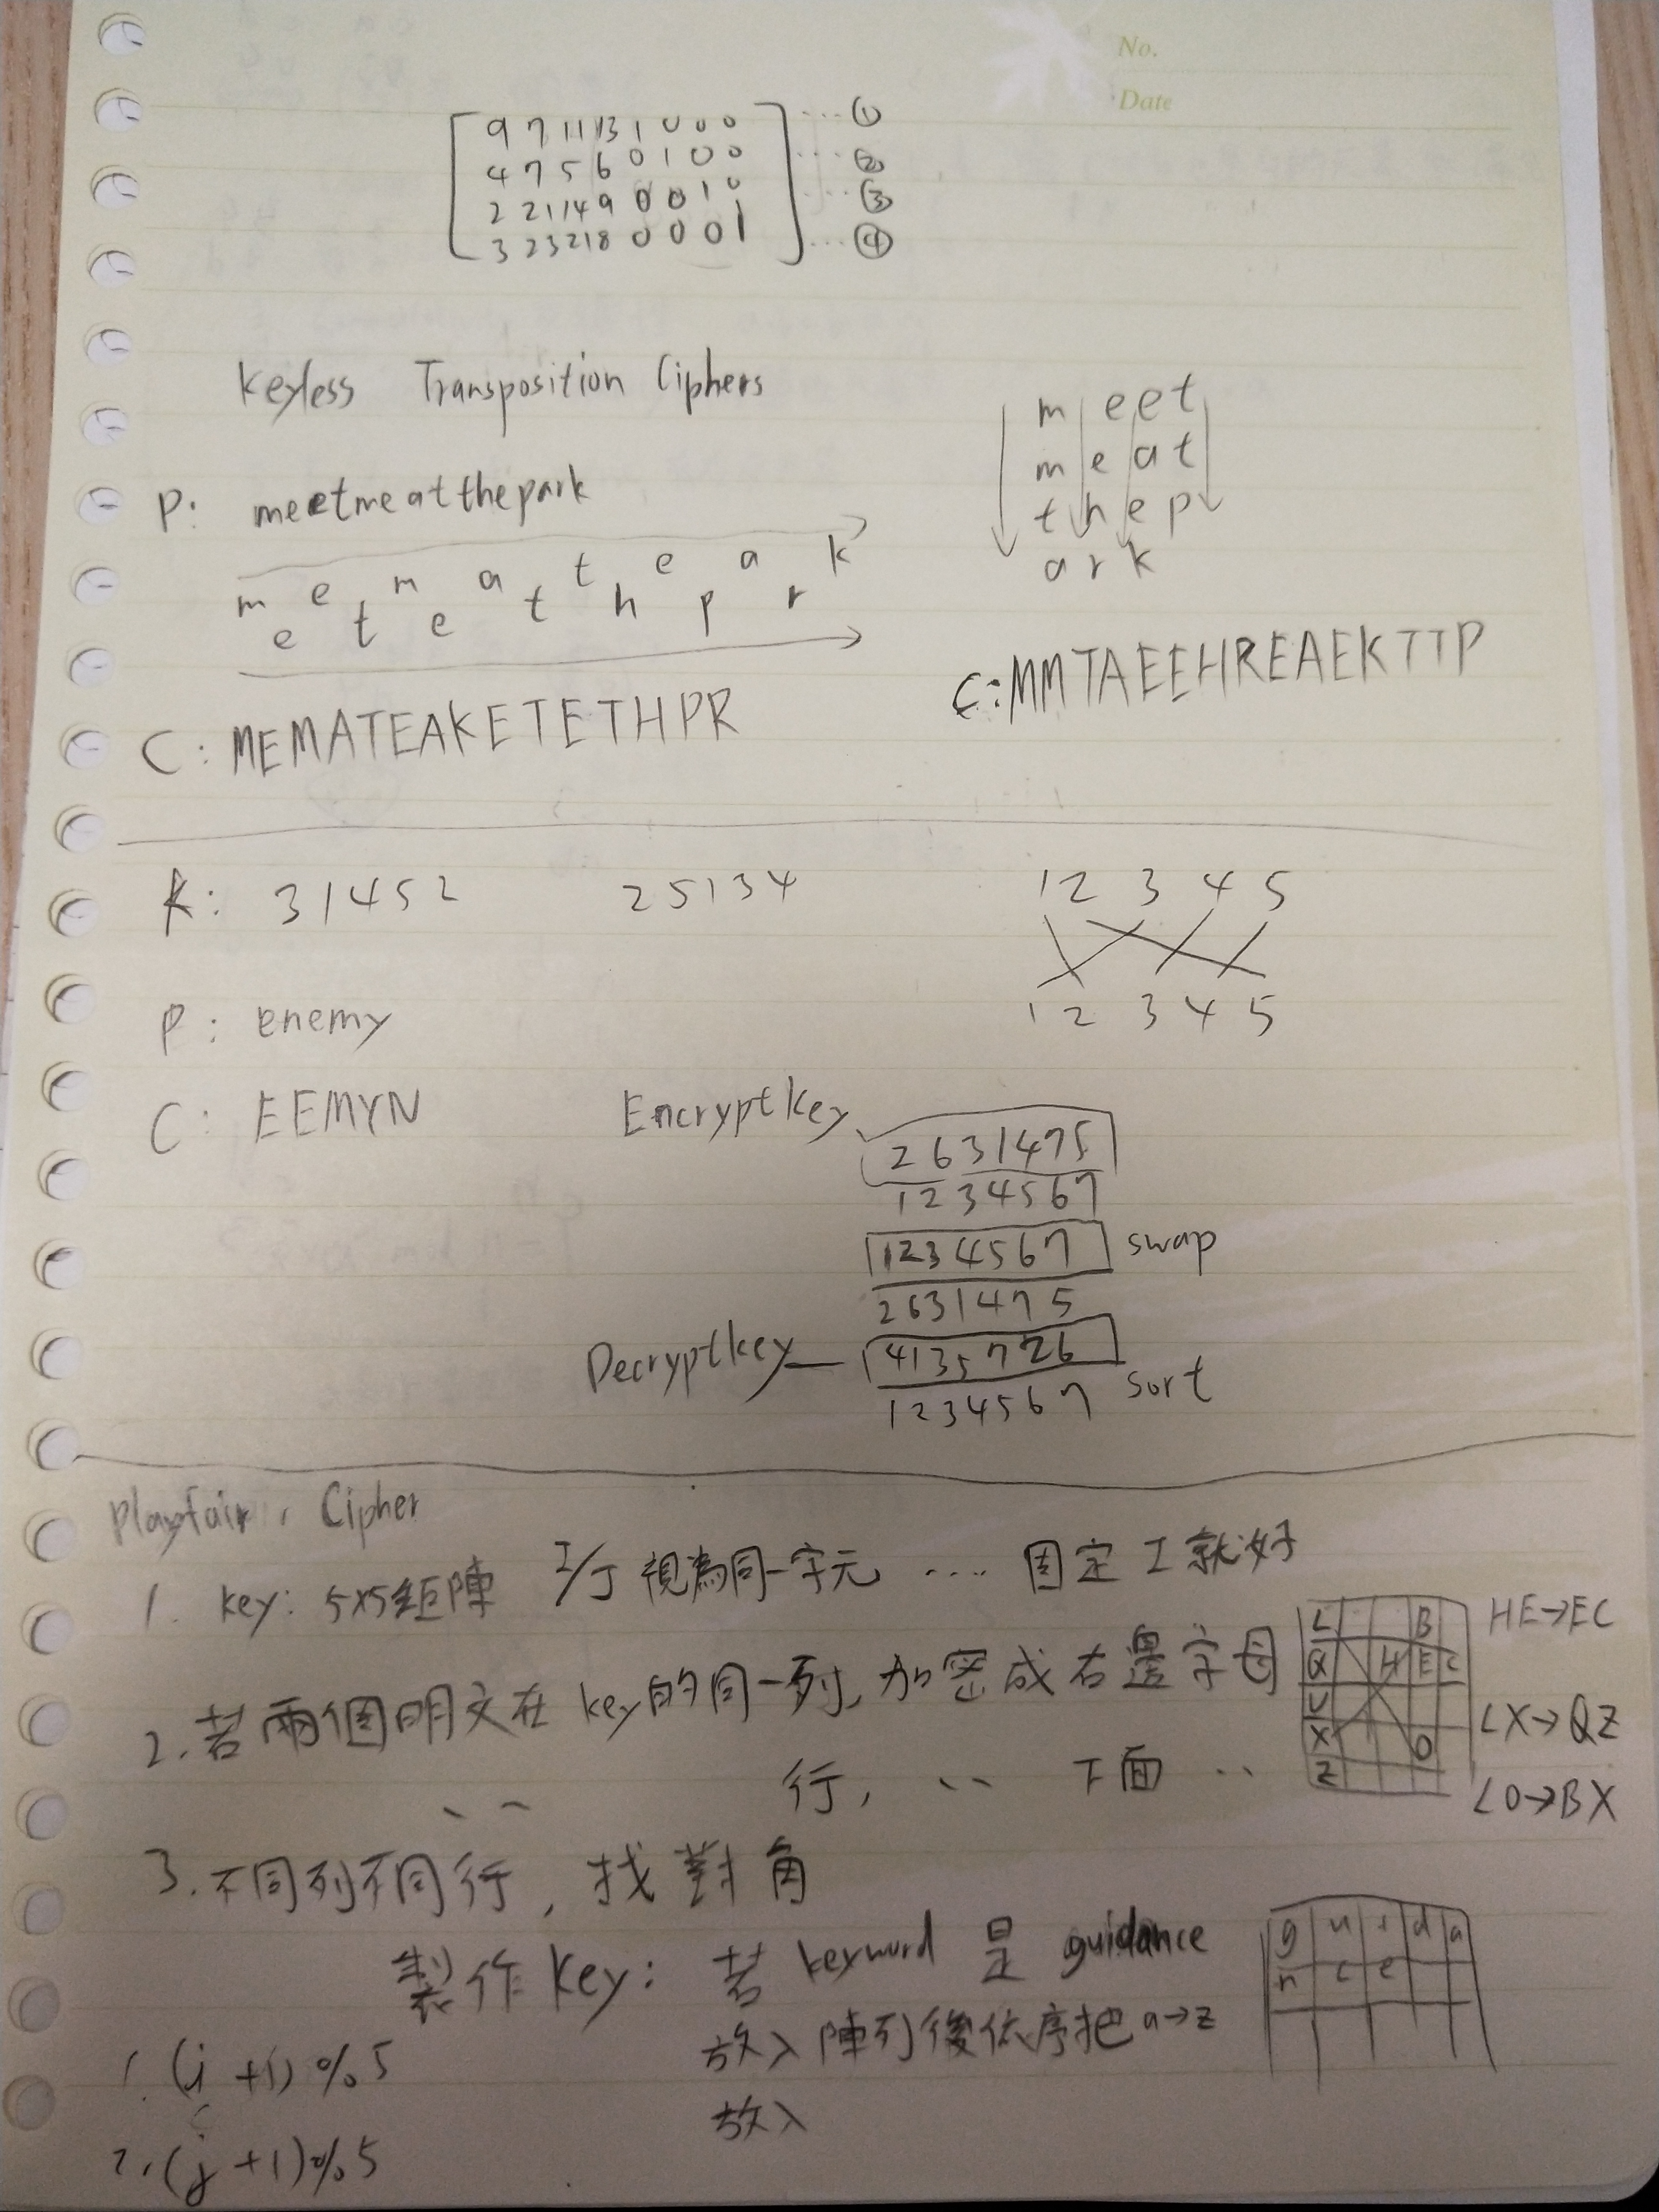 No.
Date
9 7 11 13 1 0 0 0 ... ①
4 7 5 6 0 1 0 0 ... ②
2 21 14 9 0 0 1 0 ... ③
3 23 21 8 0 0 0 1 ... ④
Keyless Transposition Ciphers
P: meetmeatthepark
m e m a t e a k
e t e t h p r
C: MEMATEAKETETHPR
m e e t
m e a t
t h e p
a r k
C: MMTAEEHREAEKTTP
k: 31452 25134
1 2 3 4 5
1 2 3 4 5
P: enemy
C: EEMYN
Encrypt key
2631475
1234567
1234567 swap
2631475
Decrypt key — 4135726
1234567 sort
Playfair Cipher
1. key: 5x5矩陣 I/J 視為同一字元 .... 固定 I 就好
2. 若兩個明文在 key的同一列, 加密成右邊字母
、、 行, 、、 下面 、、
L B
Q H E C
U
X O
Z
HE→EC
LX→QZ
LO→BX
3. 不同列不同行, 找對角
製作 key: 若 keyword 是 guidance
放入陣列後依序把 a→z
放入
g u i d a
n c e
1. (i +1) % 5
2. (j +1) % 5